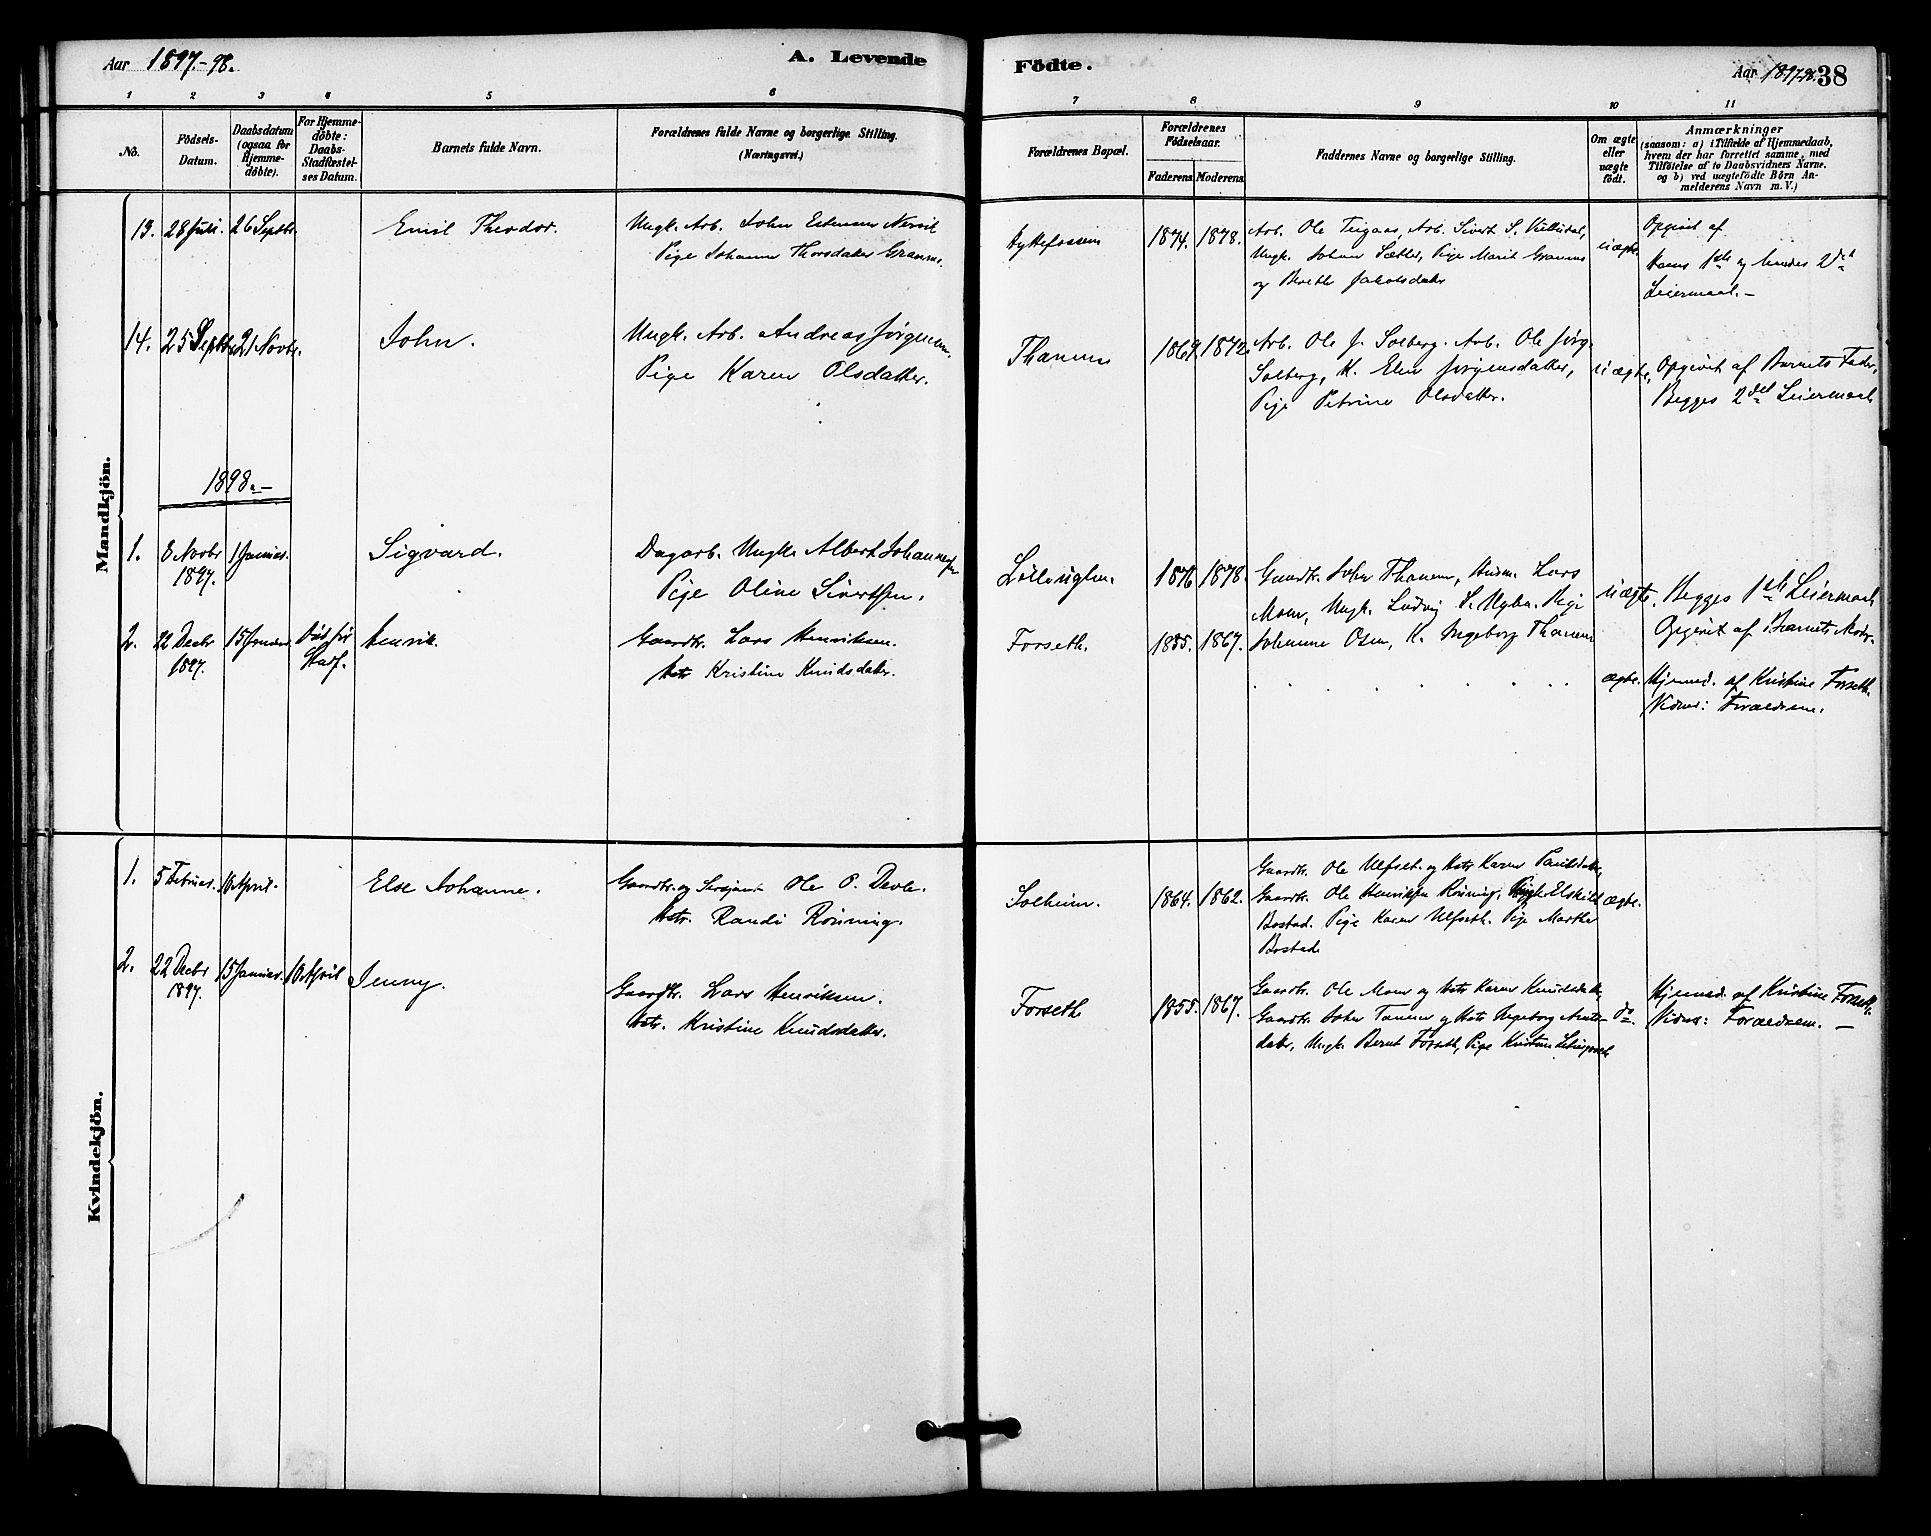 Aar 1897.-98.
A. Levende
Födte.
Aar 1897-98. 38
1 2 3 4 5 6 7 8 9 10 11
No.
Födsels-
Datum.
Daabsdatum
(ogsaa for
Hjemme-
döbte).
For Hjemme-
döbte:
Daabs-
Stadfæstel-
ses Datum.
Barnets fulde Navn.
Forældrenes fulde Navne og borgerlige Stilling.
(Næringsvei.)
Forældrenes Bopæl.
Forældrenes
Födselsaar.
Faderens Moderens
Faddernes Navne og borgerlige Stilling.
Om ægte
eller
uægte
födt.
Anmærkninger
(saasom: a) i Tilfælde af Hjemmedaab,
hvem der har forrettet samme, med
Tilföielse af to Daabsvidners Navne.
og b) ved uægtefödte Börn An-
melderens Navn m.V.)
Mandkjön.
13. 28 Juli. 26 Septbr. Emil Theodor.
Ungk. Arb. John
Pige Johanna Thorsdatter
1874. 1878.
Arb. Ole Teigaas, Arb. Sivert S.
Ungk. Johan Sætter, Pige Marit
og Berethe Jakobsdatter
uægte.
Opgivet af
Hans 1ste og hendes 2det
Leiermaal.-
14. 25 Septbr. 21 Novbr. John.
Ungk. Arb. Andreas Jørgensen,
Pige Karen Olsdatter.
Thanem
1869. 1872.
Arb. Ole J. Solberg. Arb. Ole Jørg.
Solberg, K. Elen Jörgensdatter,
Pige Petrine Olsdatter.
uægte.
Opgivet af Barnets Fader,
Begges 2det Leiermaal
1898.-
1. 8 Novbr 1 Januar. Sigvard.
1897.
Dagarb. Ungk. Albert Johannesen
Pige Oline Sivertsen.
1876 1878.
Gaardbr. John Thanem, Husm. Lars
Moen, Ungk. Ludvig S. Pige
Johanne Osen, K. Ingeborg Thanem
uægte.
Begges 1ste Leiermaal
Opgivet af Barnets Moder.
2. 22 Decbr 15 Januar. Død før Henrik.
1897. Stadf.
Gaardbr. Lars Henriksen.
Hstr Kristine Knudsdatter.
Forseth.
1855. 1867.
ægte.
Hjemmed. af Kristine Forseth.
Vidner: Forældrene.
Kvindekjön.
1. 5 Februar. 10 April. Else Johanne.
Gaardbr. og Sersjant Ole O. Devle.
Hstr. Randi Rönning.
Solheim.
1864. 1862.
Gaardbr. Ole Ulfset. og Hstr Karen Paulsdatter,
Gaardbr. Ole Henriksen Rönning, Elskild
Bostad. Pige Karen Ulfseth. Pige Marthe
Bostad
ægte.
2. 22 Decbr 15 Januar. 10 April Jenny.
1897.
Gaardbr. Lars Henriksen.
Hstr. Kristine Knudsdatter.
Forseth
1855. 1867.
Gaardbr. Ole Moen og Hstr Karen Knudsdatter,
Gaardbr. John Tanem og Hstr Ingeborg
datter, Ungk. Bernt Forseth, Pige Kristine
do.
Hjemmed. af Kristine Forseth.
Vidner: Forældrene. -